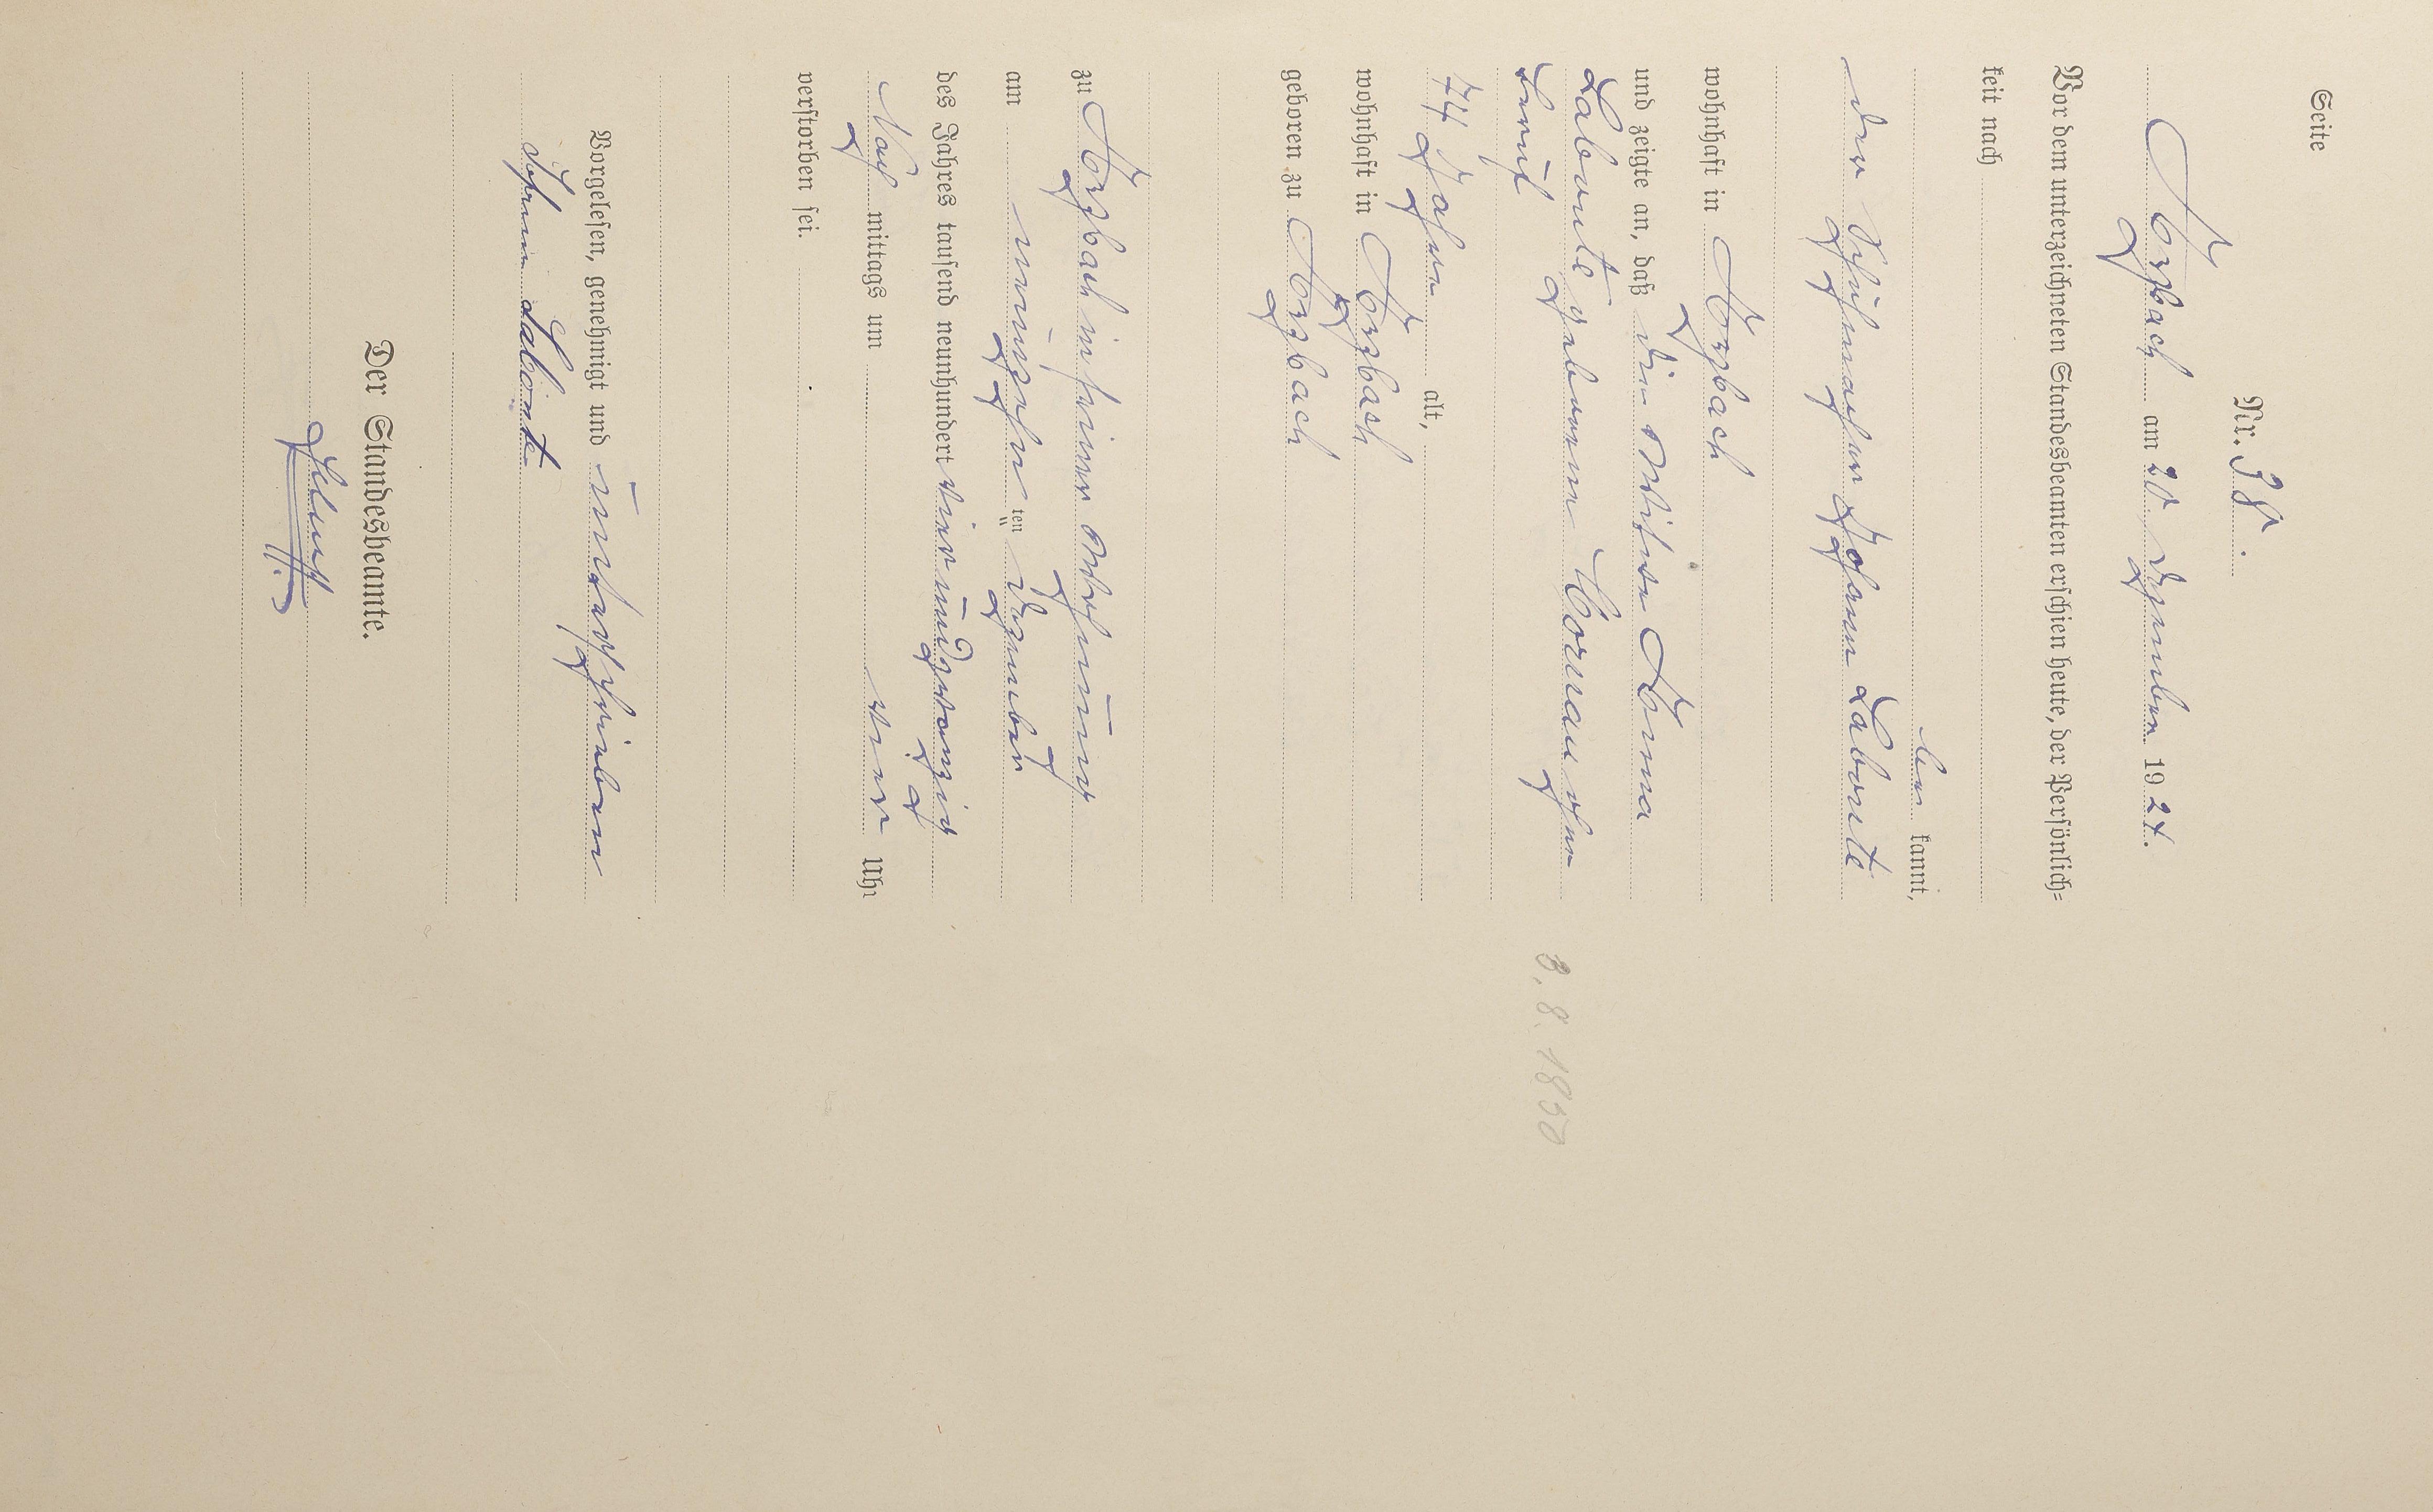 Seite
Nr. 38.
Atzbach am 20 Dezember 1924.
Vor dem unterzeichneten Standesbeamten erschien heute, der Persönlich=
keit nach
be kannt,
der Schuhmacher Johann Labonte
wohnhaft in Atzbach
und zeigte an, daß die Witwe Anna
Labonte geborene Hornau ohne
Beruf
74 Jahre alt,
wohnhaft in Atzbach
geboren zu Atzbach
zu Atzbach in seiner Wohnung
am neunzehn ten Dezember
des Jahres tausend neunhundert vierundzwanzig
Nach mittags um vier Uhr
verstorben sei.
Vorgelesen, genehmigt und unterschrieben
Johann Labonte
Der Standesbeamte.
3. 8. 1850